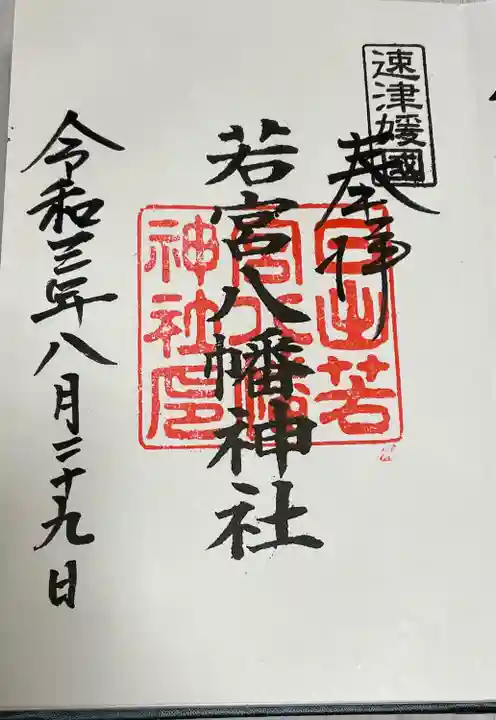 速津媛國
奉拝
日出若
宮八幡
神社印
若宮八幡神社
令和三年八月二十九日